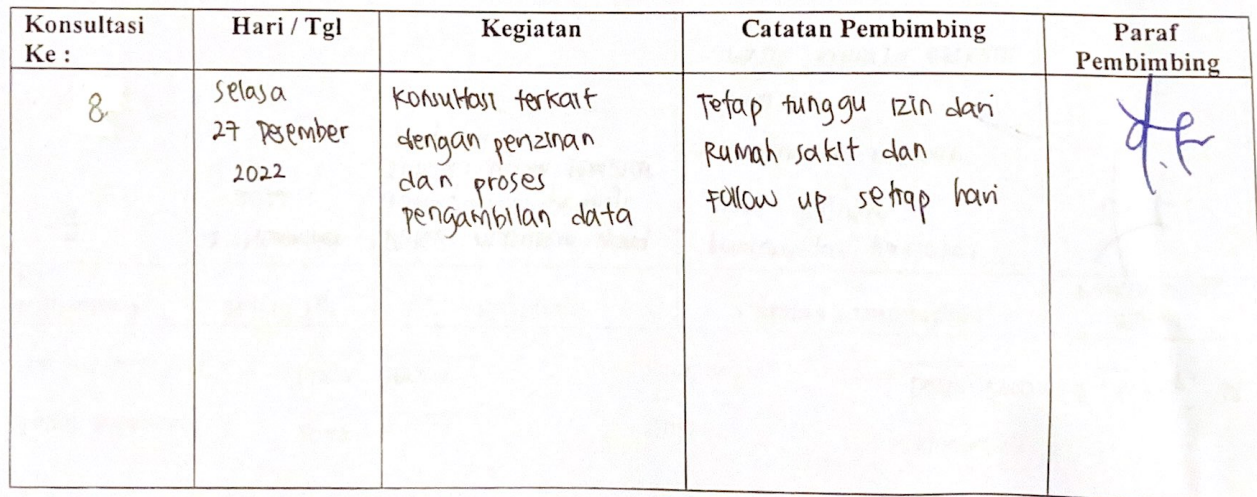 Konsultasi Ke :
Hari / Tgl
Kegiatan
Catatan Pembimbing
Paraf Pembimbing
8
Selasa
27 Desember
2022
Konsultasi terkait
dengan penzinan
dan proses
pengambilan data
Tetap tunggu izin dari
Rumah sakit dan
Follow up setiap hari